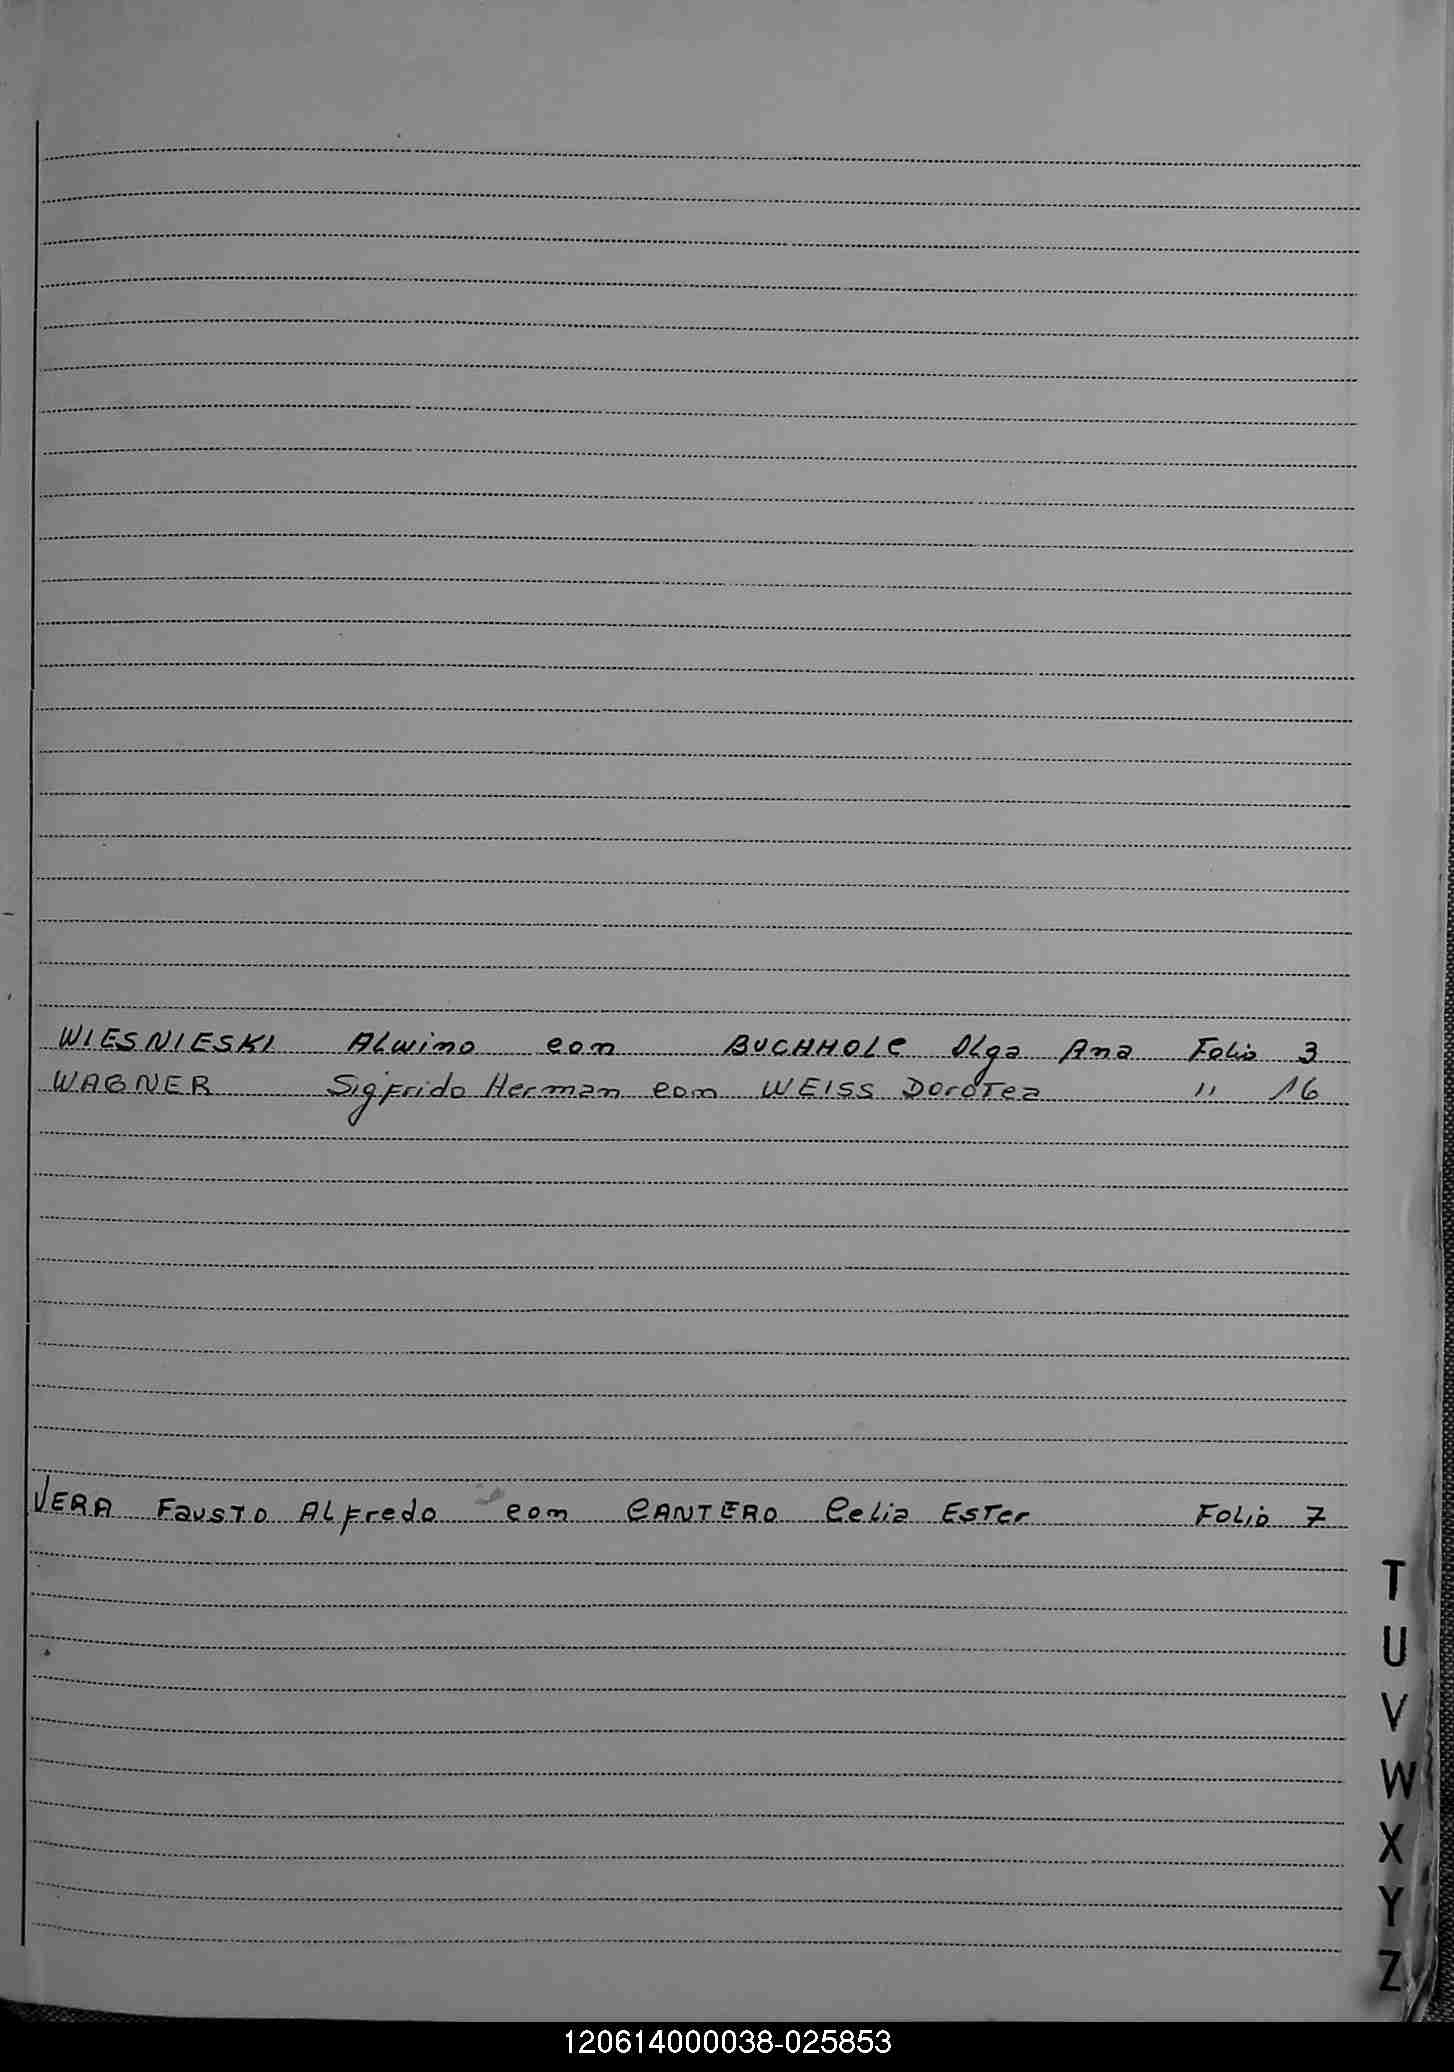 WIESNIESKI Alwino con BUCHHOLC Olga Ana Folio 3
WAGNER Sigfrido Herman con WEISS Dorotea " 16
VERA Fausto Alfredo con CANTERO Celia Ester Folio 7
T
U
V
W
X
Y
Z
120614000038-025853